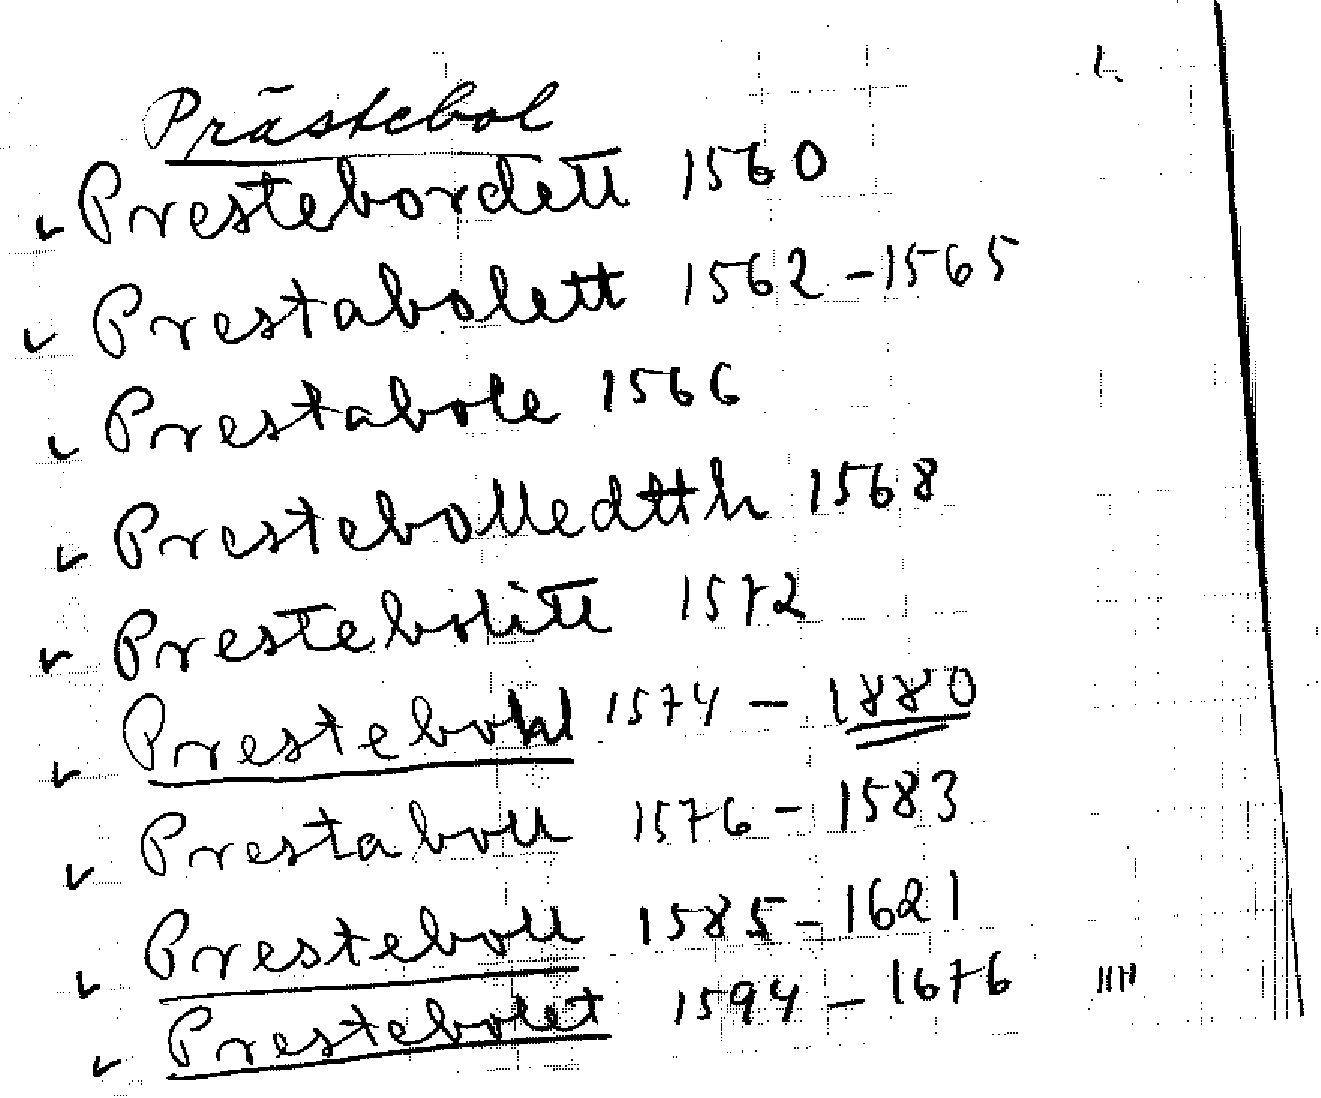 Prästebol
Prestebordett 1560
Prestabolett 1562-1565
Prestabole 1566
Prestebolledtth 1568
Prestebolitt 1572
Prestebohl 1574 - 1880
Prestaboll 1576 - 1583
Presteboll 1585 - 1621
Prestebolet 1594 - 1676